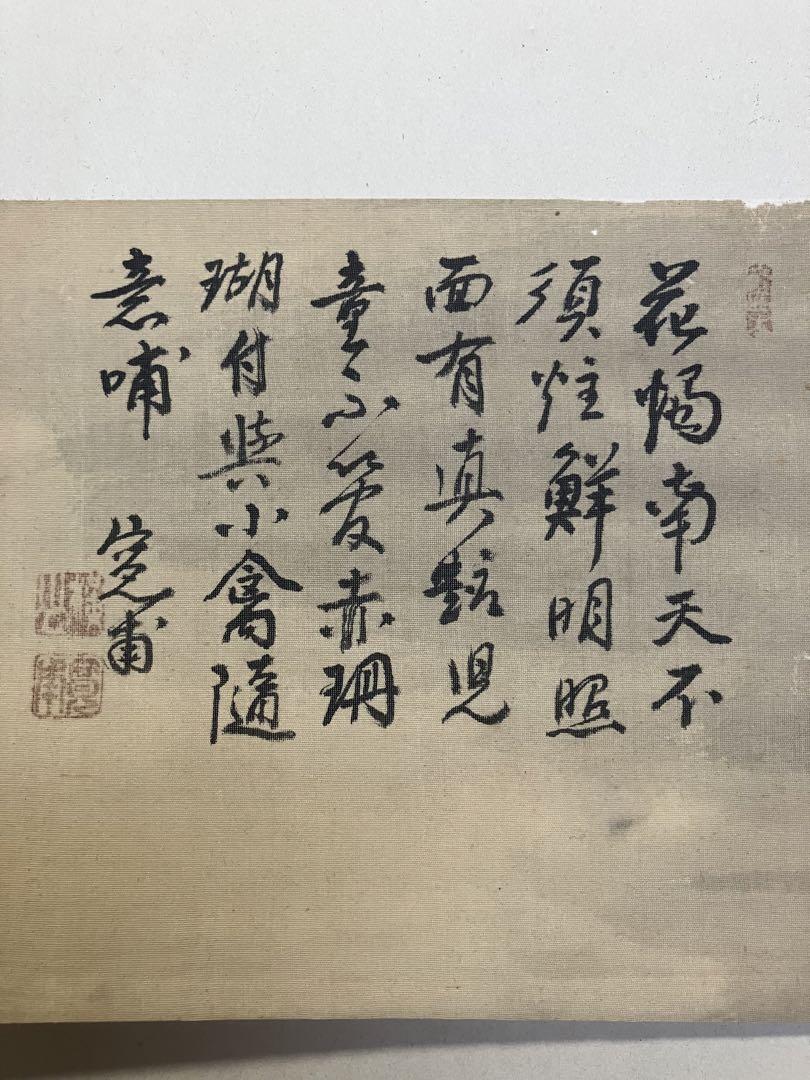 花燭南天不
須炷鮮明照
面有真兒
童不愛赤珊
瑚付與小禽隨
意哺 寬甫